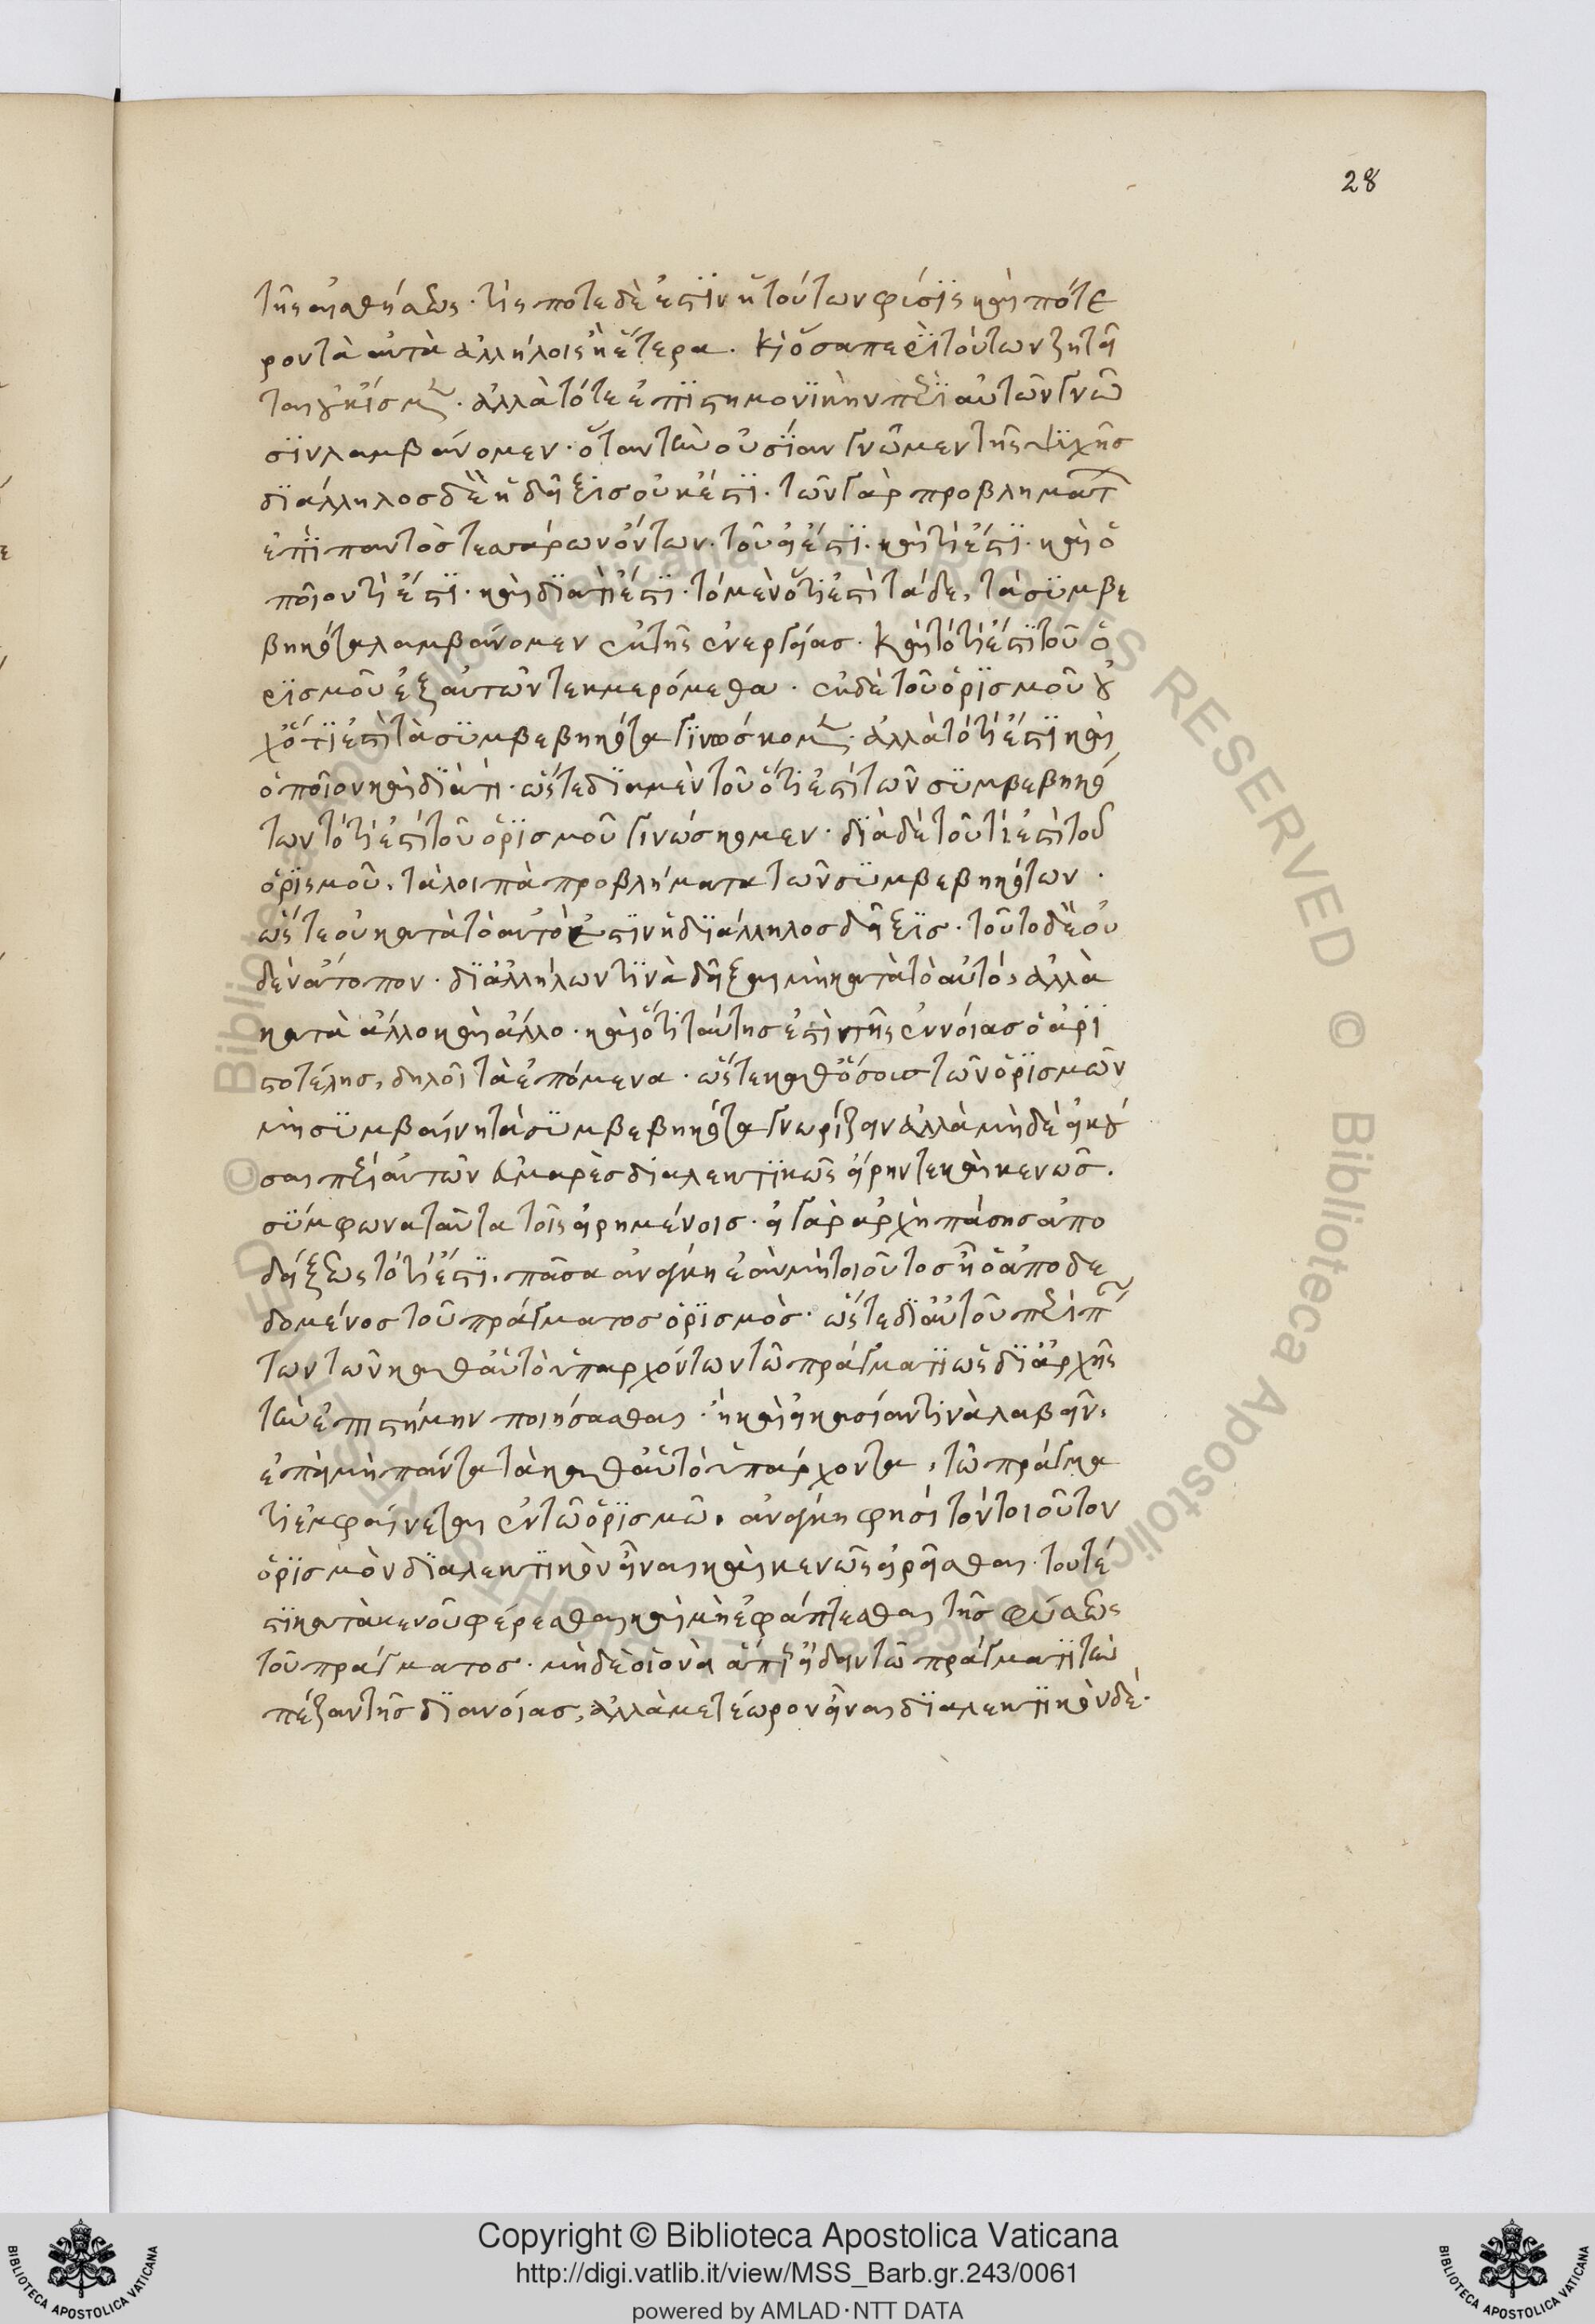 28
τῆς αἰσθήσεως· τίς ποτε δὲ ἐστὶν ἡ τούτων φύσις καὶ πότε
ρον τὰ αὐτὰ ἀλλήλοις ἢ ἕτερα. κỳ ὅσα περὶ τούτων ζητεῖ
ται οὐκ ἴσμεν. ἀλλὰ τότε ἐπιστημονικὴν περὶ αὐτῶν γνῶ
σιν λαμβάνομεν· ὅταν τὴν οὐσίαν γνῶμεν τῆς ψυχῆς
διάλληλος δὲ ἡ δεῖξις οὐκ ἔστι. τῶν γὰρ προβλημάτ
ἐπὶ παντὸς τεσσάρων ὄντων. τοῦ εἰ ἔστι. καὶ τί ἔστι. καὶ ὁ
ποῖον τί ἔστι. καὶ διατί ἔστι. τὸ μὲν ὅτι ἐστὶ τάδε, τὰ συμβε
βηκότα λαμβάνομεν ἐκ τῆς ἐνεργείας. καὶ τὸ τί ἔστι τοῦ ὁ
ρισμοῦ ἐξ αὐτῶν τεκμερόμεθα. ἐκ δὲ τοῦ ὁρισμοῦ οὐ
χ ὅτι ἐστὶ τὰ συμβεβηκότα γινώσκομεν. ἀλλὰ τὸ τί ἔστι καὶ
ὁποῖον καὶ διὰ τί. ὥστε διὰ μὲν τοῦ ὅτι ἐστὶ τῶν συμβεβηκό
των τὸ τί ἐστὶ τοῦ ὁρισμοῦ γινώσκομεν. διὰ δὲ τοῦ τί ἐστὶ τοῦ
ὁρισμοῦ, τὰ λοιπὰ προβλήματα τῶν συμβεβηκότων.
ὥστε οὐ κατὰ τὸ αὐτὸ ἐστὶν ἡ διάλληλος δεῖξις. τοῦτο δὲ οὐ
δὲν ἄτοπον. δι' ἀλλήλων τινὰ δεῖξαι μὴ κατὰ τὸ αὐτό, ἀλλὰ
κατὰ ἄλλο καὶ ἄλλο. καὶ ὅτι ταύτης ἐστὶν τῆς ἐννοίας ὁ ἀρι
στοτέλης, δηλοῖ τὰ ἑπόμενα. ὥστε καθ' ὅσοις τῶν ὁρισμῶν
μὴ συμβαίνη τὰ συμβεβηκότα γνωρίζειν ἀλλὰ μὴδὲ εἰκά
σαι περὶ αὐτῶν εὐμαρὲς διαλεκτικῶς εἴρηνται καὶ κενῶς.
σύμφωνα ταῦτα τοῖς εἰρημένοις. εἰ γὰρ ἀρχὴ πάσης ἀπο
δείξεως τὸ τί ἔστι. πᾶσα ἀνάγκη ἐὰν μὴ τοιοῦτος ἦ ὁ ἀποδε
δομένος τοῦ πράγματος ὁρισμὸς. ὥστε δι' αὐτοῦ περὶ πάν
των τῶν καθ' αὑτὸ ὑπαρχόντων τῶ πράγματι ὡς δι' ἀρχῆς
τὴν ἐπιστήμην ποιήσασθαι. ἢ καὶ εἰκασίαν τινὰ λαβεῖν.
ἐπεὶ μὴ πάντα τὰ καθ' αὑτὸ ὑπάρχοντα, τῶ πράγμα
τι ἐμφαίνεται ἐν τῶ ὁρισμῶ. ἀνάγκη φησὶ τὸν τοιοῦτον
ὁρισμὸν διαλεκτικὸν εἶναι καὶ κενῶς εἰρῆσθαι. τουτέ
στι κατὰ κενοῦ φέρεσθαι καὶ μὴ ἐφάπτεσθαι τῆς φύσεως
τοῦ πράγματος. μὴδὲ οἱονεὶ ἐπερείδειν τῶ πράγματι τὴν
πέζαν τῆς διανοίας, ἀλλὰ μετέωρον εἶναι διαλεκτικὸν δὲ.
Copyright © Biblioteca Apostolica Vaticana
http://digi.vatlib.it/view/MSS_Barb.gr.243/0061
powered by AMLAD·NTT DATA